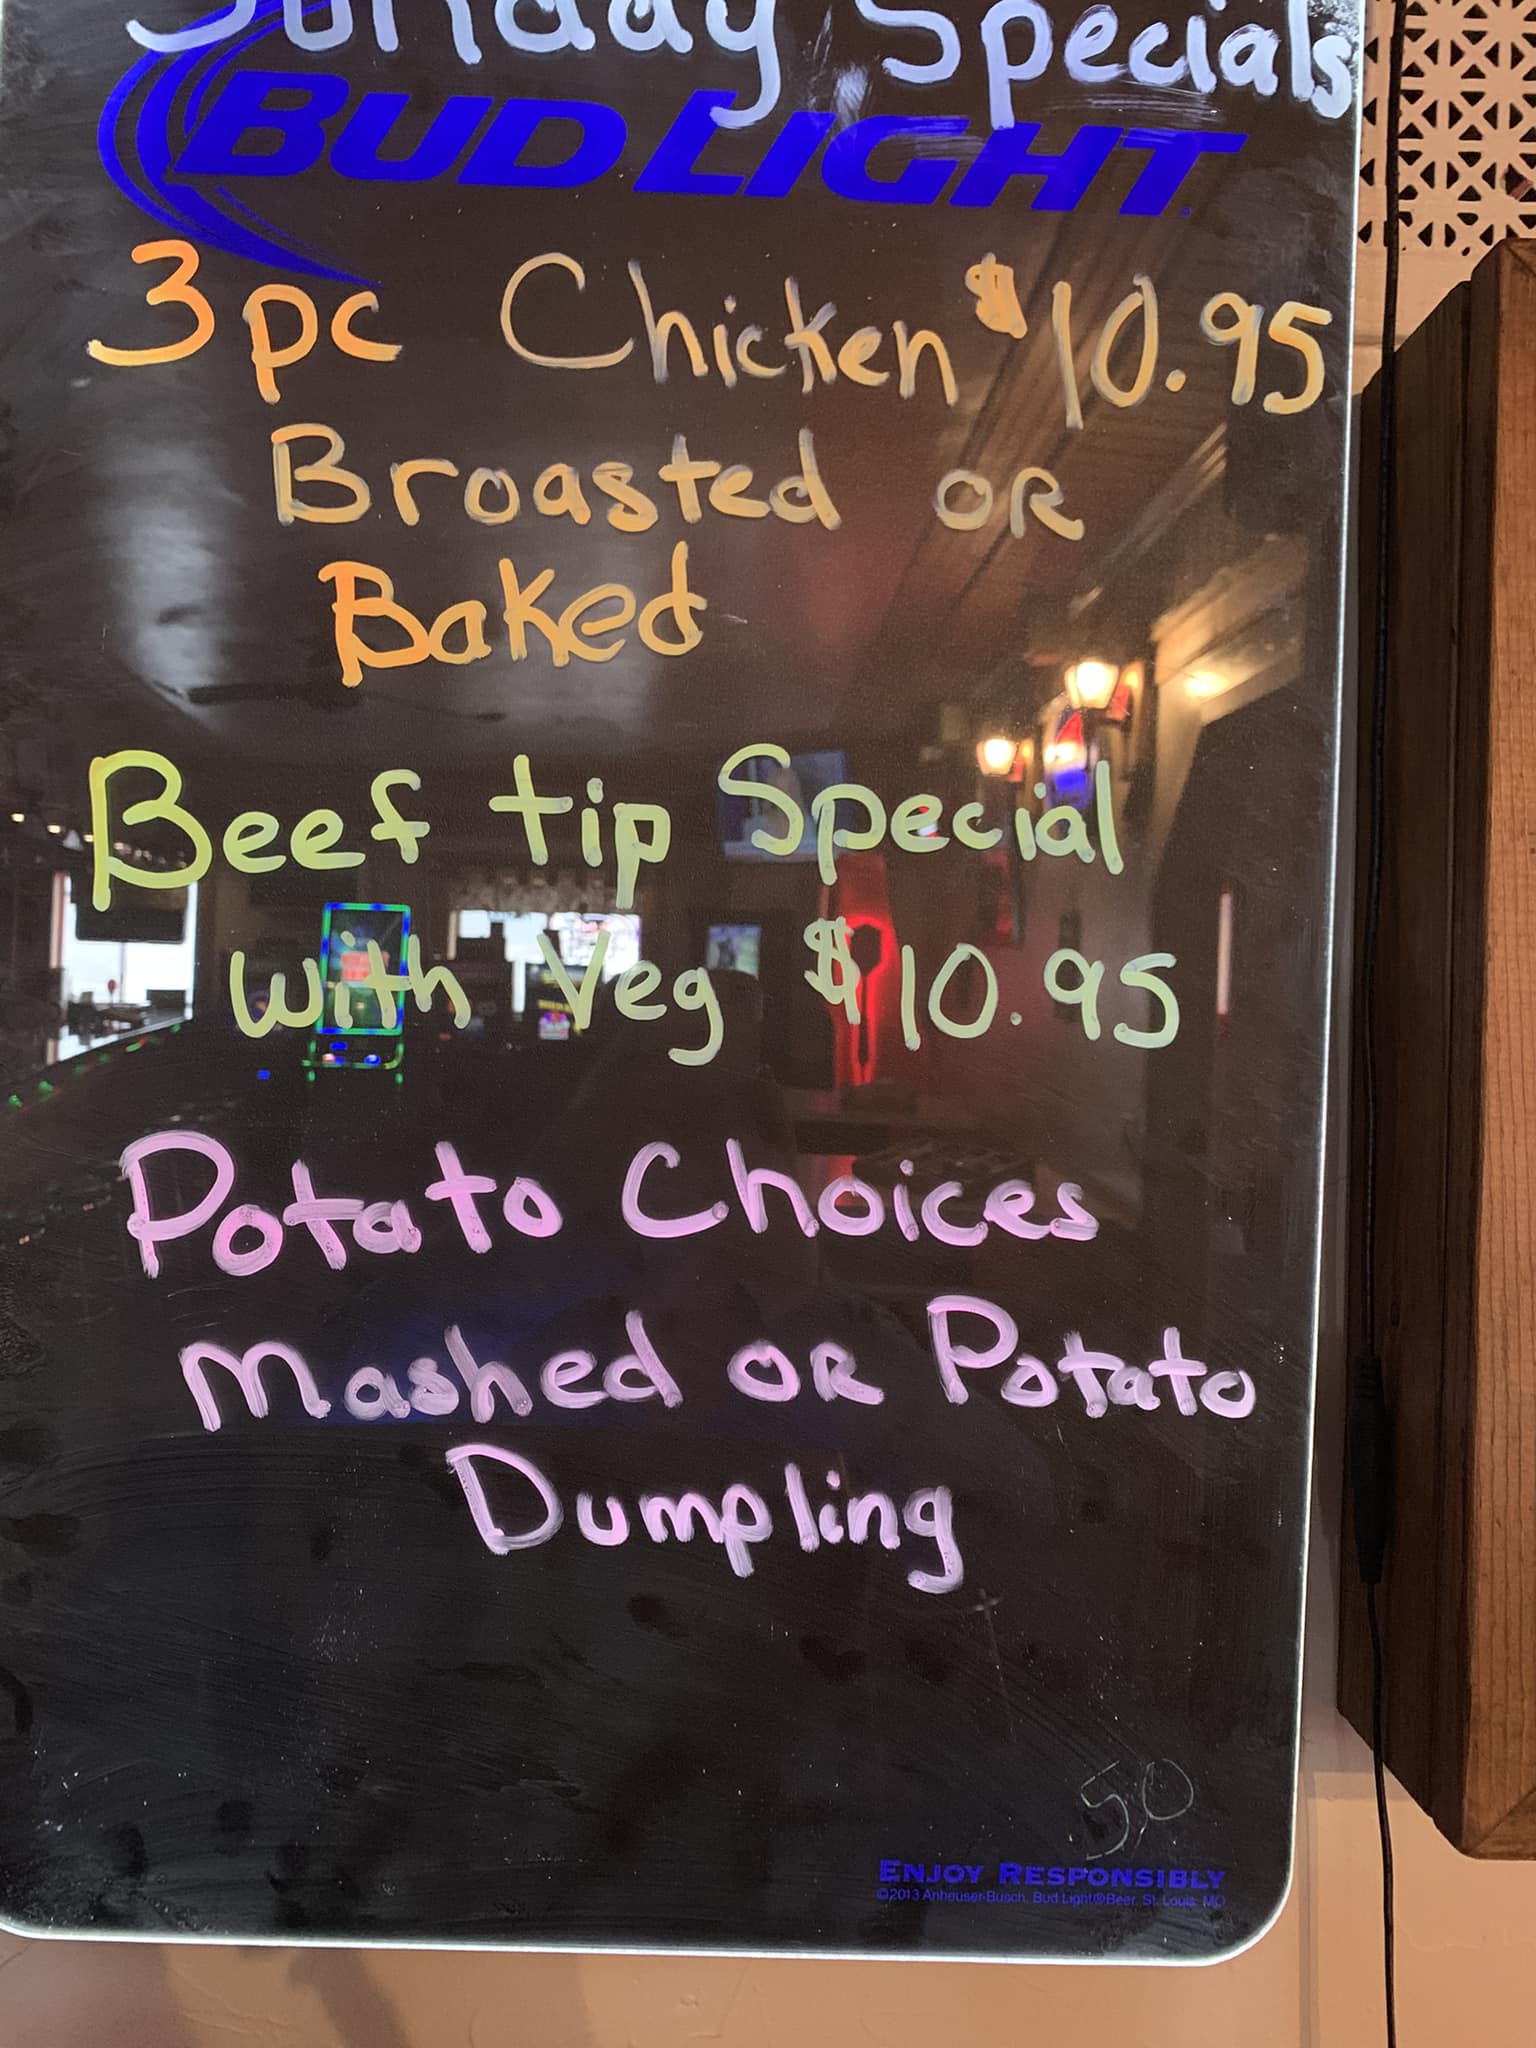 Sunday Specials
BUD LIGHT
3pc Chicken $10.95
Broasted OR
Baked
Beef tip Special
with Veg $10.95
Potato Choices
Mashed OR Potato
Dumpling
50
ENJOY RESPONSIBLY
©2013 Anheuser-Busch, Bud Light® Beer, St. Louis, MO